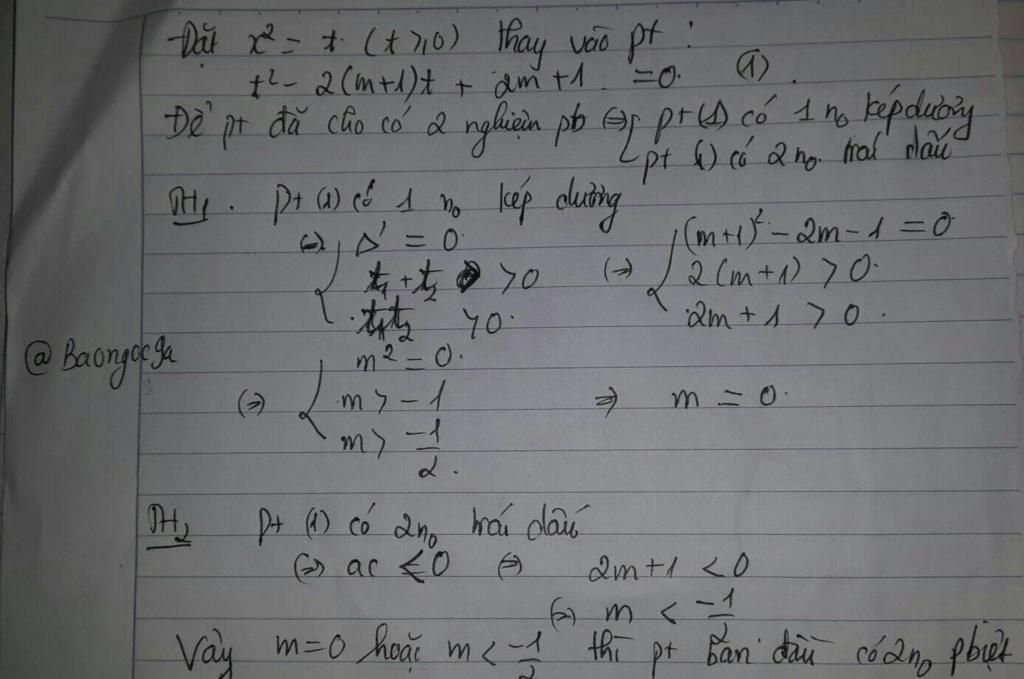 Đặt x² = t (t ≥ 0) thay vào pt :
t² - 2(m+1)t + 2m+1 = 0. (1).
Để pt đã cho có 2 nghiệm pb ⇔ [ pt (1) có 1 n₀ kép dương
pt (1) có 2n₀ trái dấu
TH₁. pt (1) có 1 n₀ kép dương
⇔ { Δ' = 0 ⇔ { (m+1)² - 2m - 1 = 0
t₁ + t₂ > 0 2(m+1) > 0.
t₁t₂ > 0. 2m + 1 > 0.
@Baongocga
⇔ { m² = 0. ⇒ m = 0.
m > -1
m > -1/2.
TH₂ pt (1) có 2n₀ trái dấu
⇔ ac < 0 ⇔ 2m+1 < 0
⇔ m < -1/2
Vậy m=0 hoặc m < -1/2 thì pt ban đầu có 2n₀ pbiệt